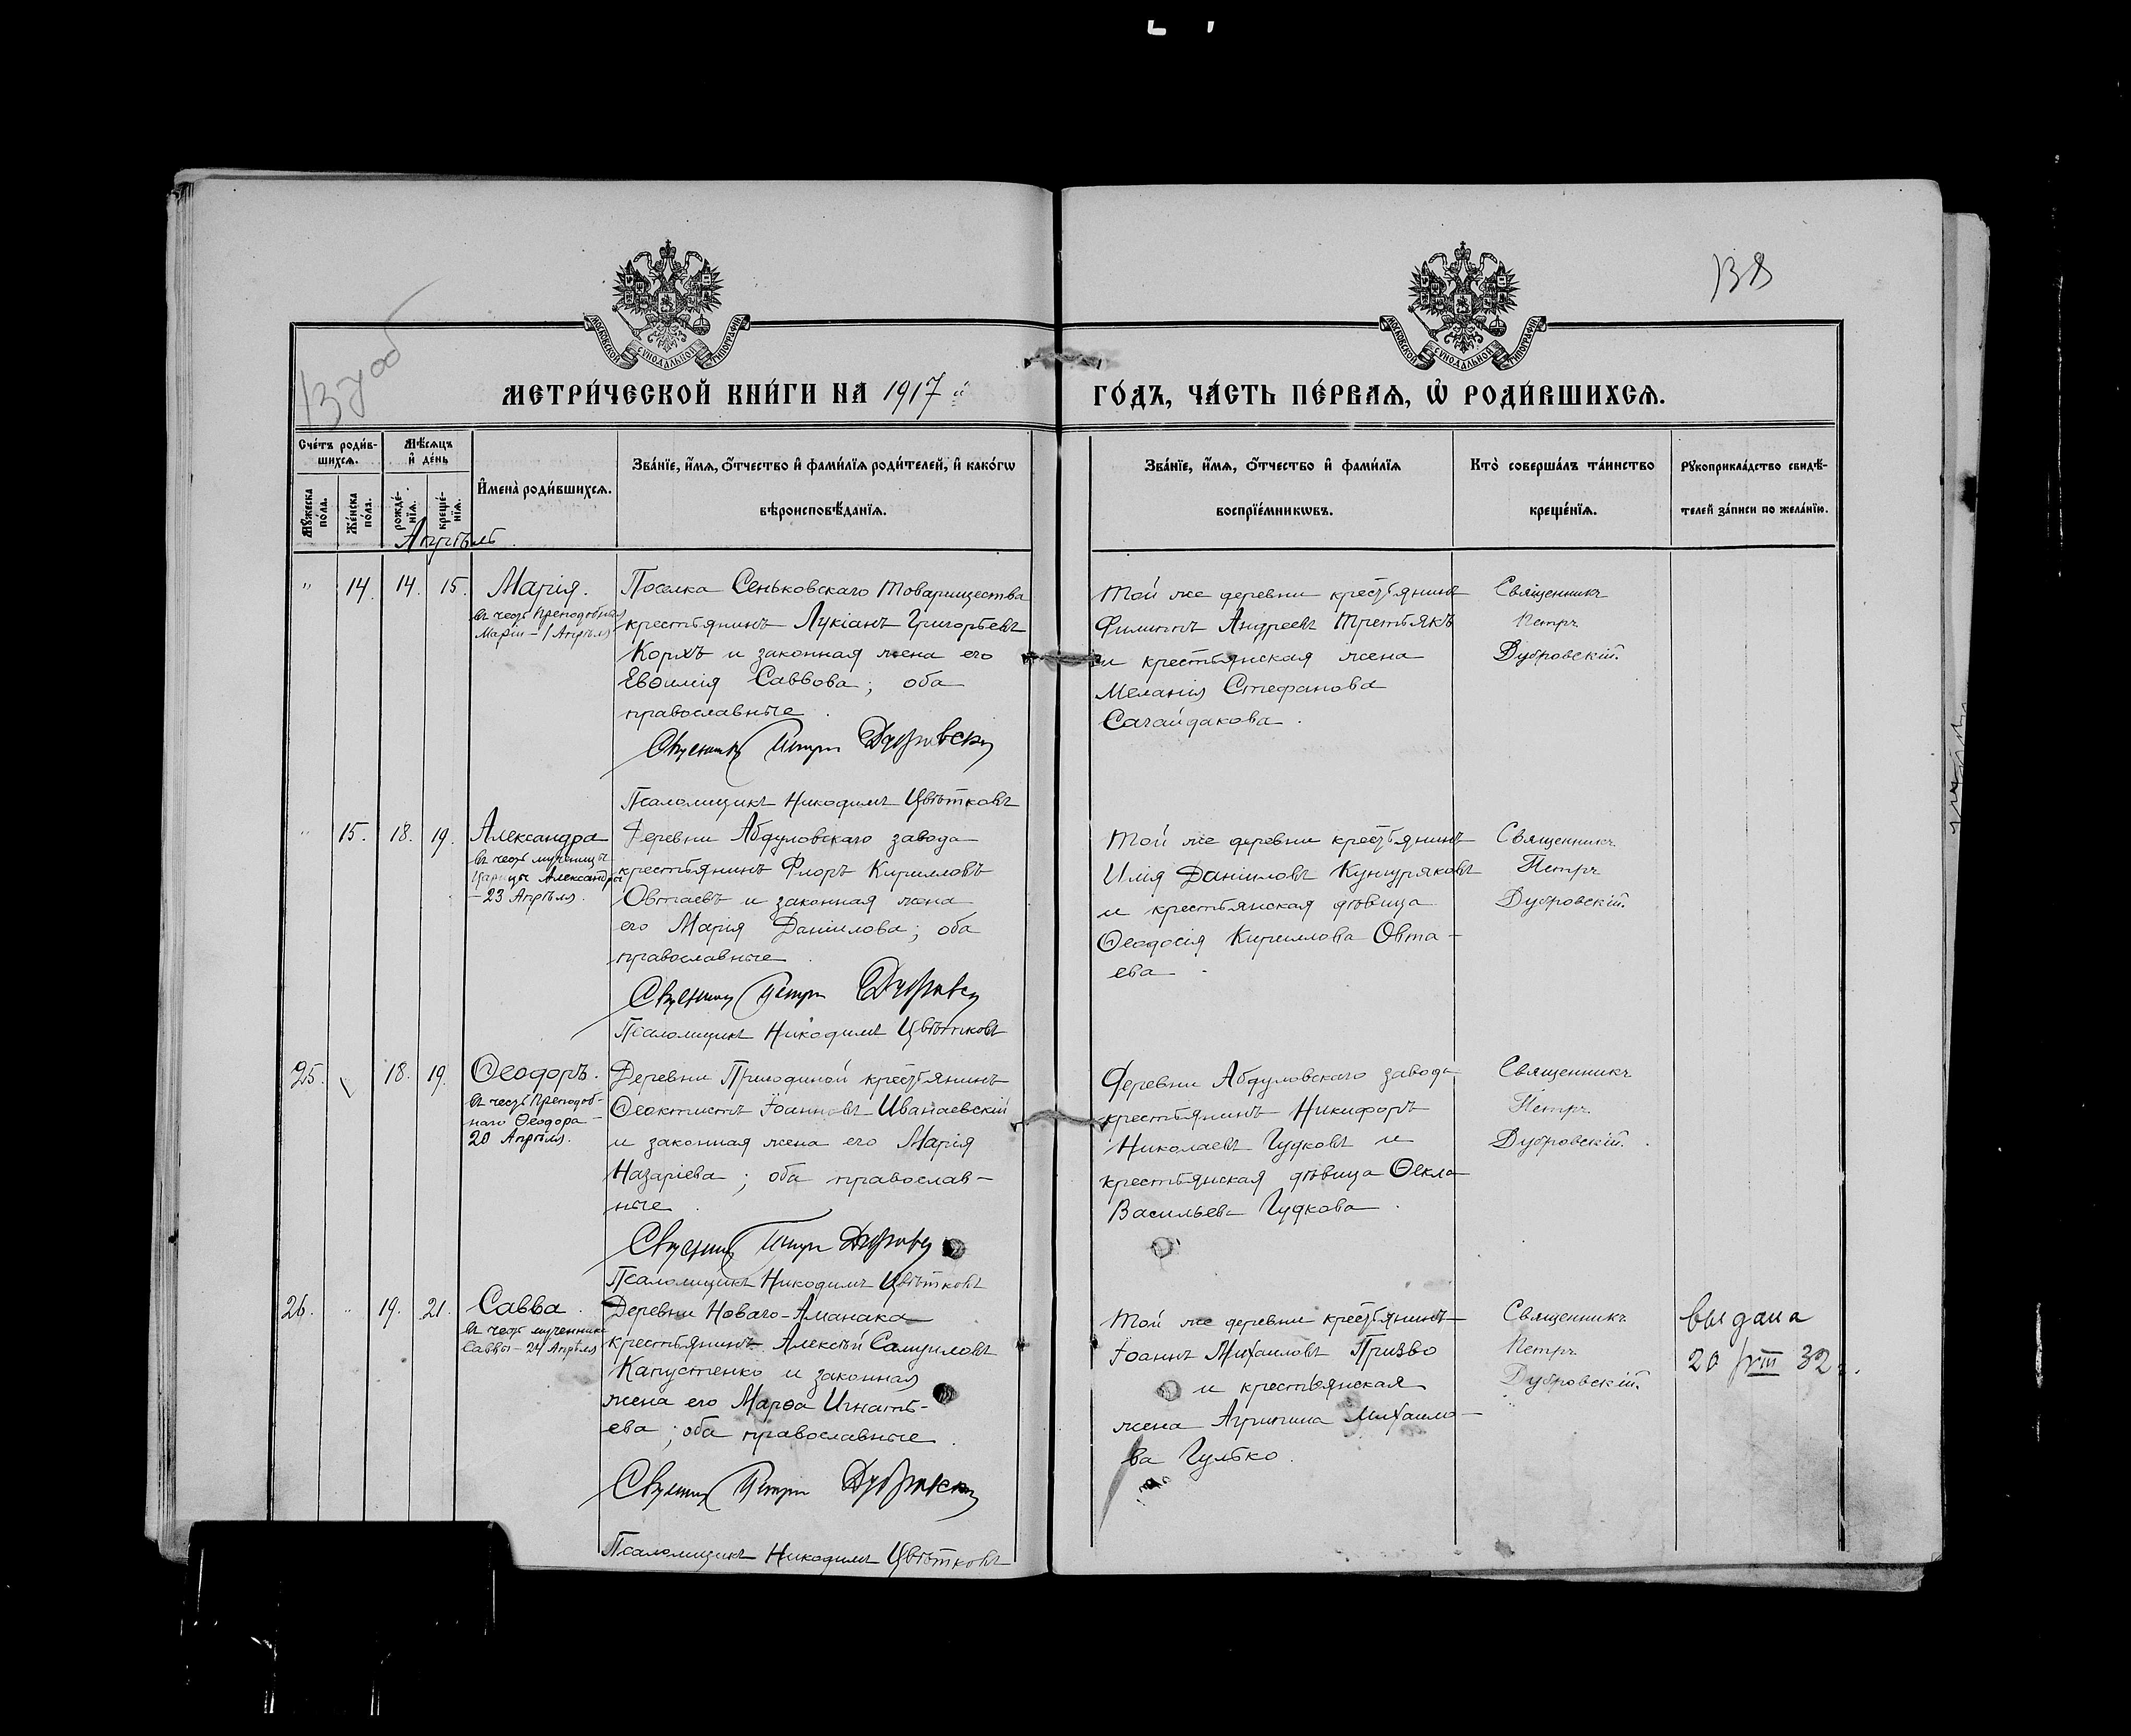 137 об
138
МОСКОВСКОЙ СѴНОДАЛЬНОЙ ТИПОГРАФІИ
МОСКОВСКОЙ СѴНОДАЛЬНОЙ ТИПОГРАФІИ
МЕТРИ́ЧЕСКОЙ КНИ́ГИ НА 1917 й
ГО́ДЪ, ЧА́СТЬ ПЕ́РВАѦ, Ѡ҆ РОДИ́ВШИХСѦ.
Сче́тъ роди́в-
шихсѧ.
Мꙋ́жеска по́ла.
Же́нска по́ла.
Мѣ́сѧцъ
и҆ де́нь
рожде́-
нїѧ.
креще́-
нїѧ.
И҆мена̀ роди́вшихсѧ.
Зва́нїе, и҆́мѧ, ѻ҆́тчество и҆ фами́лїѧ роди́телей, и҆ како́гѡ
вѣроисповѣ́данїѧ.
Зва́нїе, и҆́мѧ, ѻ҆́тчество и҆ фами́лїѧ
воспрїе́мникѡвъ.
Кто̀ соверша́лъ та́инство
креще́нїѧ.
Рꙋкоприкла́дство свидѣ́-
телей за́писи по жела́нїю.
Апрѣль
" 14. 14. 15. Марія.
въ честь Преподобныя
Маріи – 1 Апрѣля
Поселка Сеньковскаго Товарищества
крестьянинъ Лукіанъ Григорьевъ
Коржъ и законная жена его
Евѳимія Саввова; оба
православные.
Священникъ Петръ Дубровскій
Псаломщикъ Никодимъ Цвѣтковъ
Той же деревни крестьянинъ
Филиппъ Андреевъ Третьякъ
и крестьянская жена
Меланія Стефанова
Сагайдакова.
Священникъ
Петръ
Дубровскій.
" 15. 18. 19. Александра
въ честь мученицы
Царицы Александры
– 23 Апрѣля.
Деревни Абдуловскаго завода
крестьянинъ Флоръ Кирилловъ
Овтаевъ и законная жена
его Марія Даніилова; оба
православные.
Священникъ Петръ Дубровскій
Псаломщикъ Никодимъ Цвѣтковъ
Той же деревни крестьянинъ
Илія Даніиловъ Кунцуряковъ
и крестьянская дѣвица
Ѳеодосія Кириллова Овта-
ева.
Священникъ
Петръ
Дубровскій.
25. 18. 19. Ѳеодоръ.
въ честь Преподоб-
наго Ѳеодора –
20 Апрѣля.
Деревни Пригодиной крестьянинъ
Ѳеоктистъ Іоанновъ Иванаевскій
и законная жена его Марія
Назаріева; оба православ-
ные.
Священникъ Петръ Дубровскій
Псаломщикъ Никодимъ Цвѣтковъ
Деревни Абдуловскаго завода
крестьянинъ Никифоръ
Николаевъ Гудковъ и
крестьянская дѣвица Ѳекла
Васильева Гудкова.
Священникъ
Петръ
Дубровскій.
26. " 19. 21. Савва.
въ честь мученника
Саввы – 24 Апрѣля
Деревни Новаго-Аманака
крестьянинъ Алексѣй Самуиловъ
Капустенко и законная
жена его Марѳа Игнать-
ева; оба православные.
Священникъ Петръ Дубровскій
Псаломщикъ Никодимъ Цвѣтковъ
Той же деревни крестьянинъ
Іоаннъ Михаиловъ Призво
и крестьянская
жена Агрипина Михаило-
ва Гулько.
Священникъ
Петръ
Дубровскій.
выдана
20/VIII 32 г.